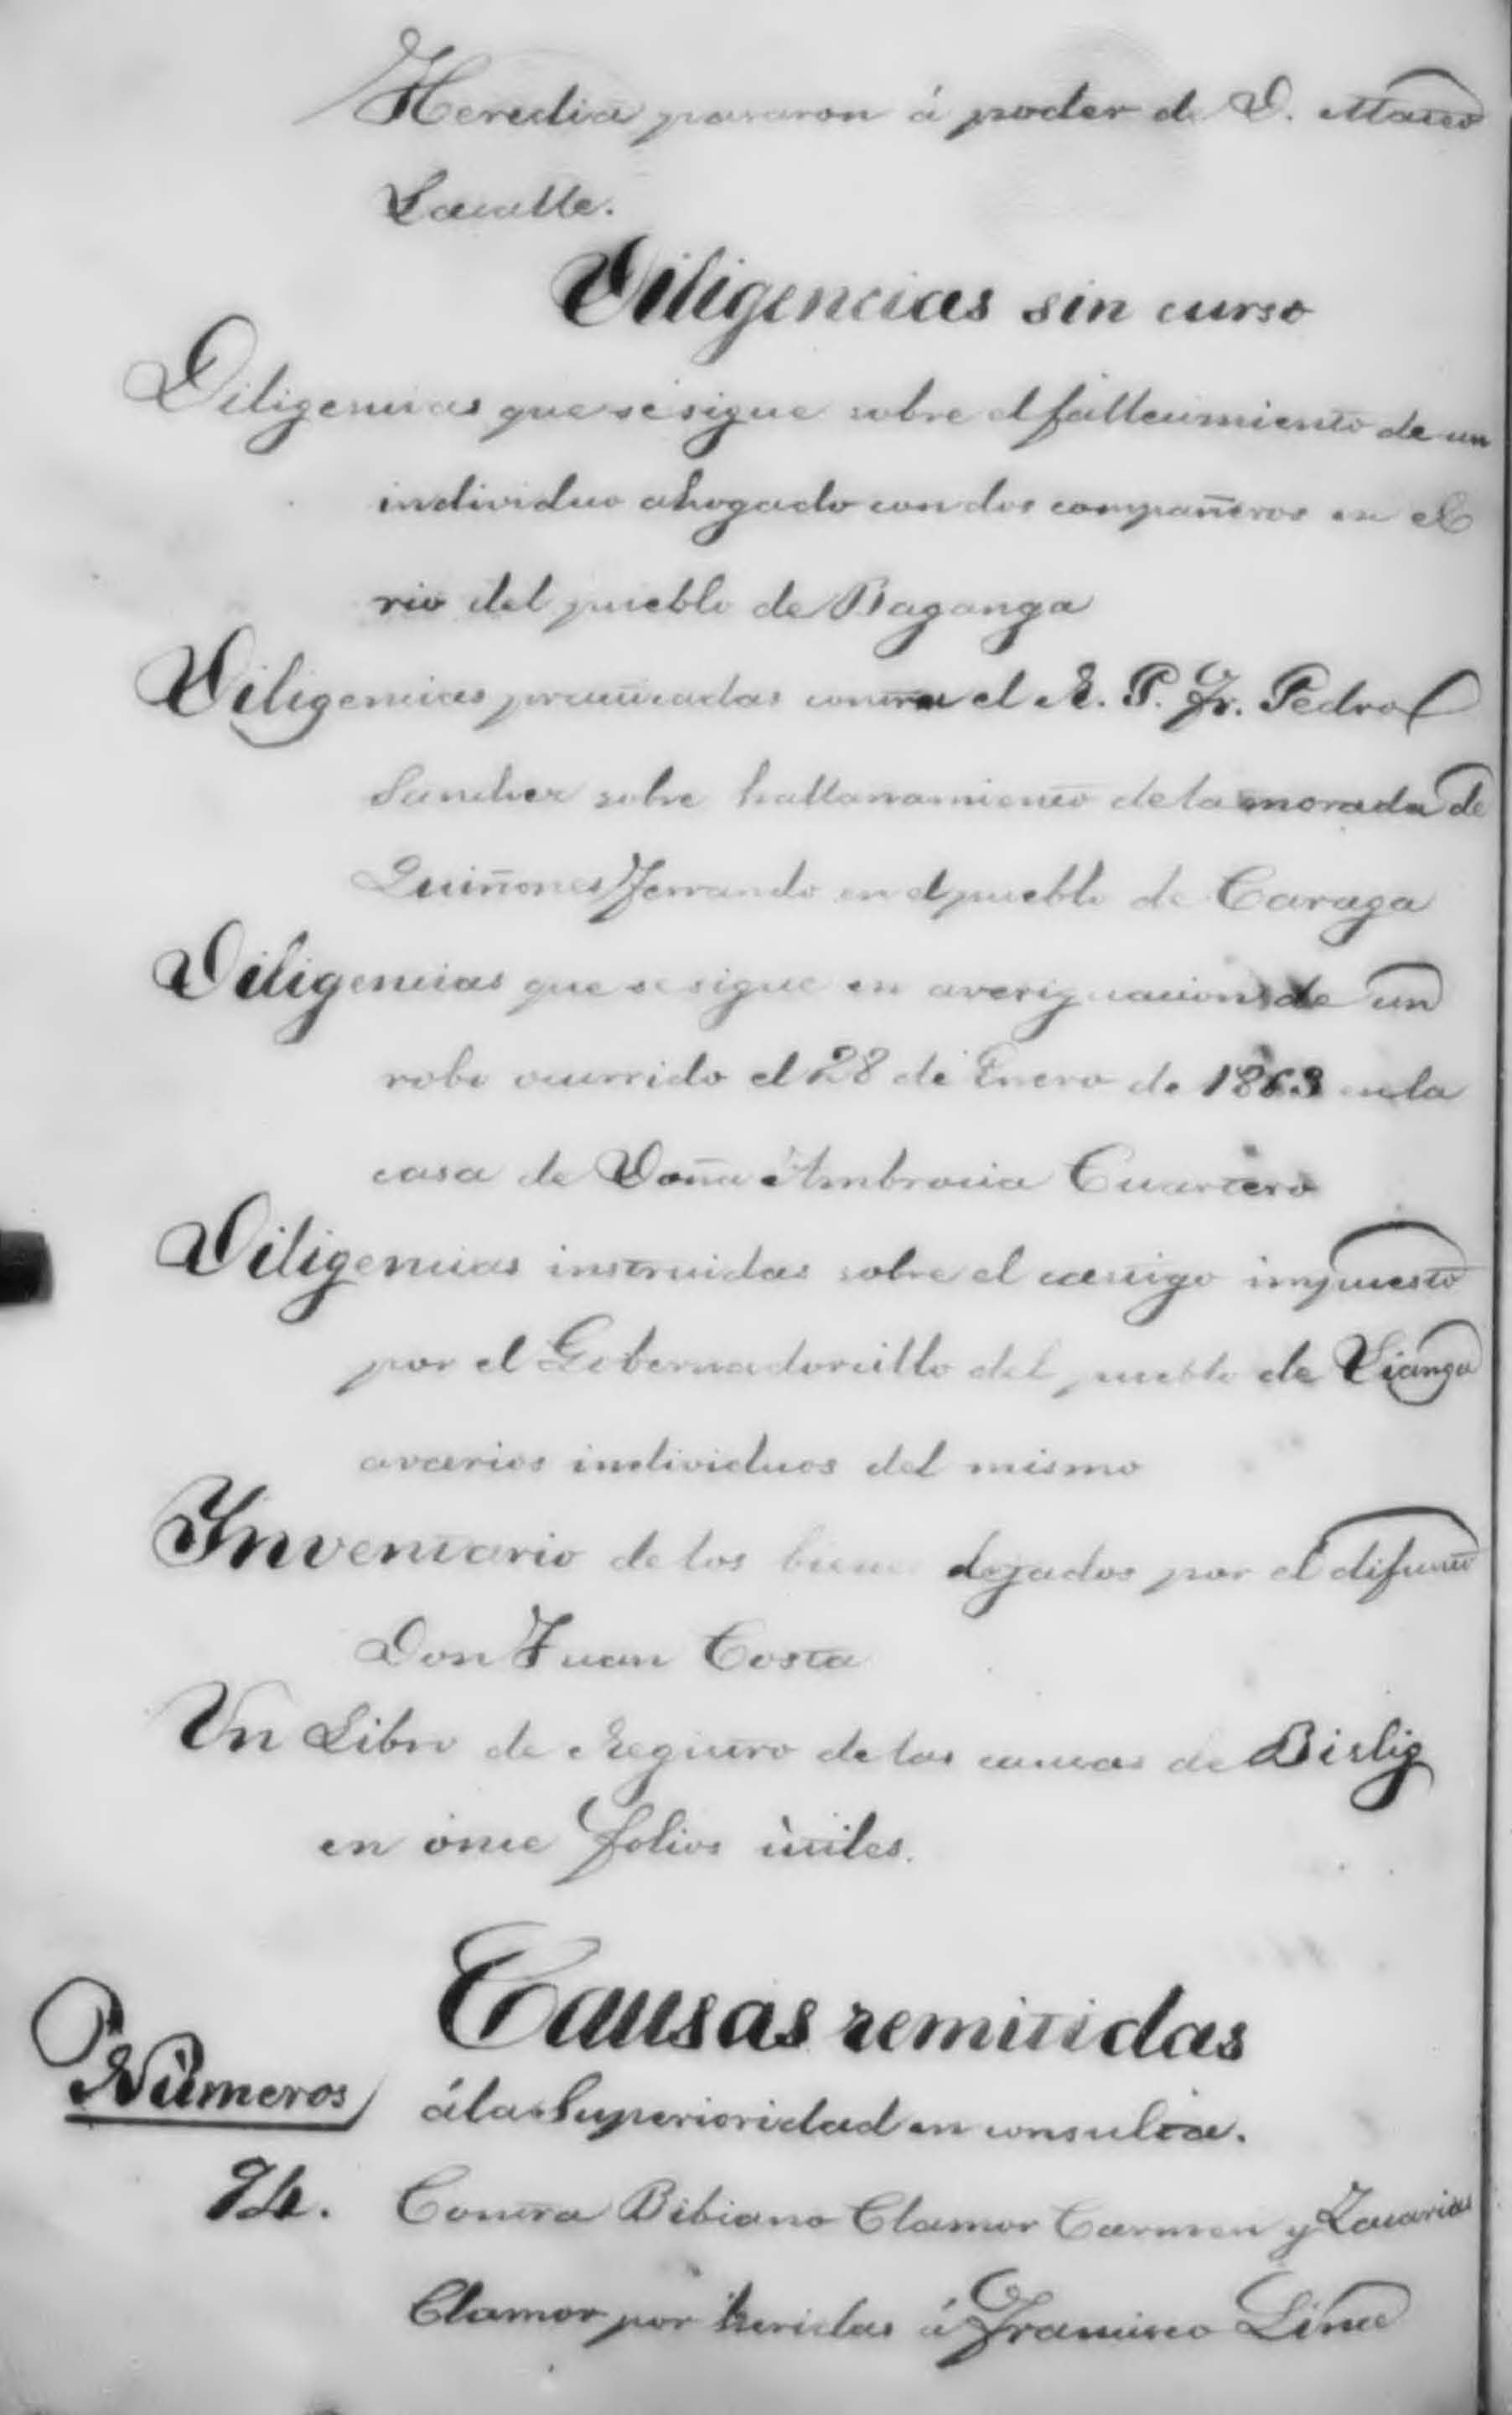 Heredia pasaron á poder de D. Mateo
Lasalle.
Diligencias sin curso
Diligencias que se sigue sobre el fallecimiento de un
individuo ahogado con dos compañeros en el
rio del pueblo de Baganga
Diligencias practicadas contra el R. P. Fr. Pedro
Sanchez sobre hallanamiento de la morada de
Quiñones Ferrando en el pueblo de Caraga
Diligencias que se sigue en averiguacion de un
robo ocurrido el 28 de Enero de 1863 en la
casa de Doña Ambrocia Cuartero
Diligencias instruidas sobre el castigo impuesto
por el Gobernadorcillo del pueblo de Lianga
a varios individuos del mismo
Inventario de los bienes dejados por el difunto
Don Juan Costa
Un Libro de Registro de las causas de Bislig
en once folios útiles.
Causas remitidas
Números á la Superioridad en consulta.
94. Contra Bibiano Clamor Carmen y Zacarias
Clamor por heridas á Francisco Lima